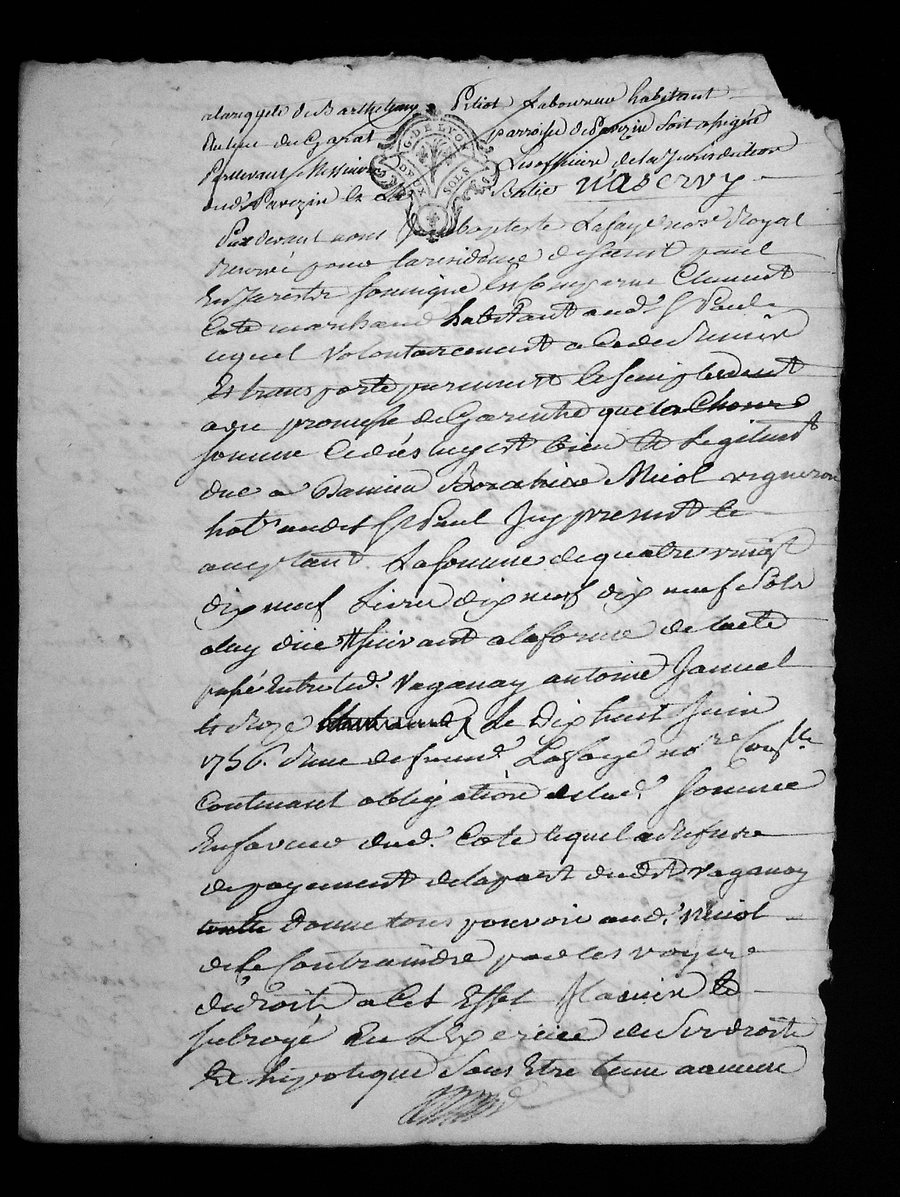 alarequete de Barthelemy Piliot Laboureur habitant
du lieu du Garat parroisse de Pavezin soit assigné
Pardevant Messieurs Les officiers de la Jurisdiction
dud. Pavezin le n'a servy
G. DE LYON
DEUX SOLS
Pardevant nous baptiste Lafaye no.re Royal
Reservé pour la residence de saint paul
En Jarestz soussigné Est comparu Clement
Cote marchand habitant aud. St Paul
lequel Volontairement a cede Remis
Et transporte purement Et simplement
avec promesse de Garentie que la
somme cedée luy est bien Et legitimt
due a Damien Micol vigneron
hat. audit St Paul Icy present Et
acceptant La somme de quatre vingt
dix neuf Livre dix neuf dix neuf Sols
a luy due suivant a la forme de lacte
passé Entre led. Vaganay antoine Jamuel
le Dix huit Juin
1756. devant Lafaye no.re
Contenant obligation de lad. somme
En faveur dud. Cote lequel a deffaut
de payement de la part dudt Vaganay
Donne tous pouvoir aud. Micol
de le Contraindre par les voyes
de droit, a cet Effet Et
subrogé En L'Exercice de ses droits
Et hipoteque sans Etre tenu a aucune